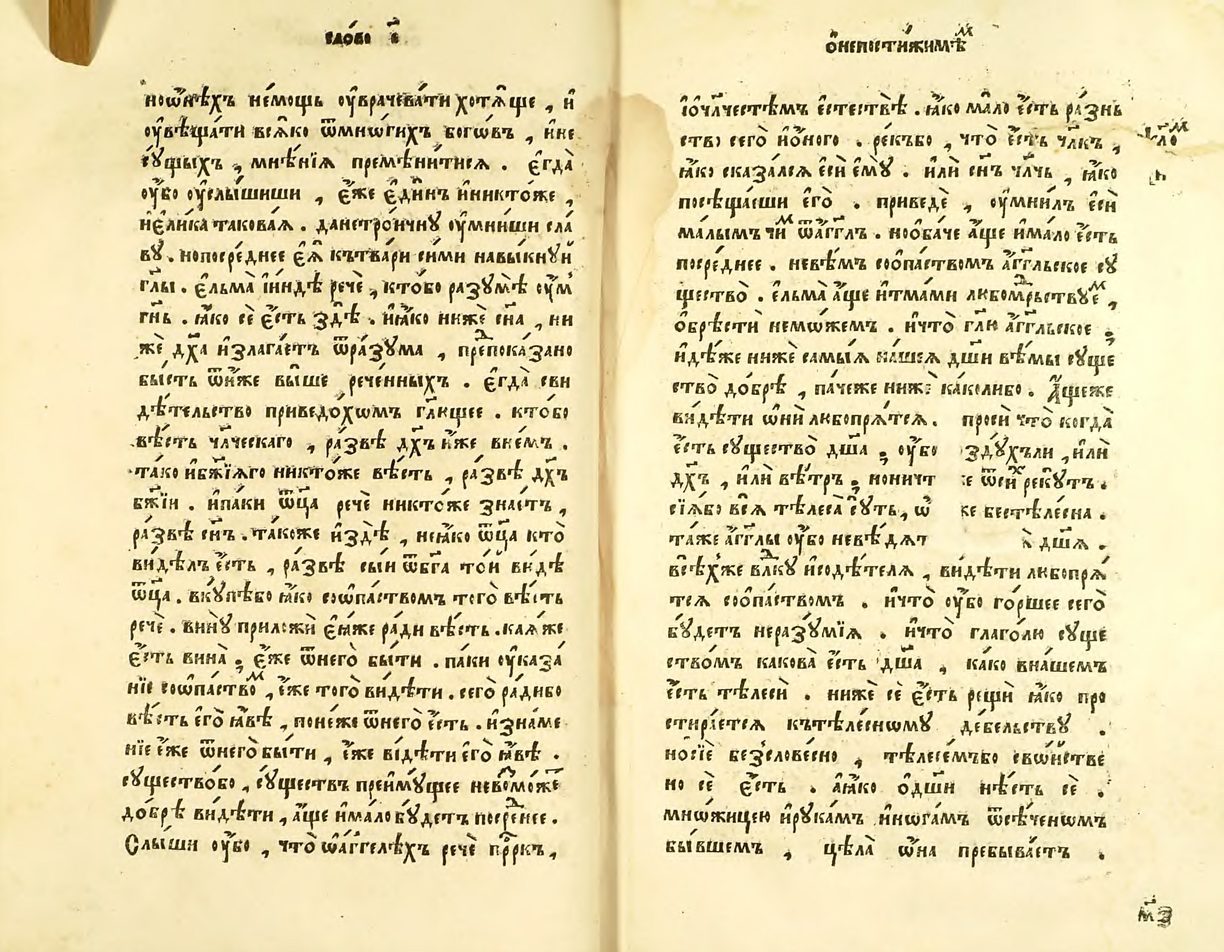 сло́во є҃
ноѡ҆нѣ́хъ не́мощь ᲂу҆врачева́ти хотѧ́ще , и҆
ᲂу҆вѣща́ти всѧ́ко ѿмнѡ́гихъ богѡ́въ , и҆не
сꙋ́щыхъ , мнѣ́нїѧ премѣни́тисѧ . є҆гда̀
ᲂу҆́бо ᲂу҆слы́шиши , є҆́же є҆ди́нъ и҆никто́же ,
и҆є҆ли́ка такова́ѧ . данетро́ичнꙋ ᲂу҆мни́ши сла́
вꙋ . нопосре́днее є҆ѧ̀ кътва́ри си́ми навыкнꙋ́й
гл҃ы . є҆льма̀ и҆и́ндѣ речѐ , кто́бо разꙋмѣ̀ ᲂу҆́м
гн҃ь . ꙗ҆́ко сѐ є҆́сть здѣ̀ . и҆ꙗ҆́ко нижѐ сн҃а , ни
жѐ дх҃а и҆злага́етъ ѿра́зꙋма , препока́зано
бы́сть ѿи҆́же вы́ше рече́нныхъ . є҆гда̀ сви
дѣ́тельство приведо́хомъ гл҃ющее . кто́бо
вѣ́сть чл҃ческаго , ра́звѣ дх҃ъ и҆́же вне́мъ .
та́ко и҆бж҃їѧго никто́же вѣ́сть , ра́звѣ дх҃ъ
бж҃їи . и҆па́ки ѿц҃а речѐ никто́же зна́етъ ,
ра́звѣ сн҃ъ . та́коже и҆здѣ̀ , неꙗ҆́ко ѿц҃а кто̀
ви́дѣлъ є҆́сть , ра́звѣ сы́и ѿбг҃а то́й ви́дѣ
ѿц҃а . вкꙋ́пѣбо ꙗ҆́ко соѡ҆па́ствомъ того̀ вѣ́сть
речѐ . винꙋ̀ приложѝ є҆ѧ́же ра́ди вѣ́сть . ка́ѧже
є҆́сть вина̀ ; є҆́же ѿнего̀ бы́ти . па́ки ᲂу҆каза́
нїе соѡ҆па́ствоⷨ , є҆́же того̀ ви́дѣти . сего̀ ра́дибо
вѣ́сть є҆го̀ ꙗ҆́вѣ , поне́же ѿнего̀ є҆́сть . и҆зна́ме
нїе є҆́же ѿнего̀ бы́ти , є҆́же ви́дѣти є҆го̀ ꙗ҆́вѣ .
сꙋщество́бо , сꙋ́ществъ преимꙋ́щее невоⷥмо́же
до́брѣ ви́дѣти , а҆́ще и҆ма́ло бꙋ́детъ посреⷣнее .
Слы́ши ᲂу҆́бо , что̀ ѡ҆а҆́гг҃елѣхъ речѐ прⷪ҇ркъ ,
ѡ҆непостижи́мѣⷨ
и҆ѡ҆чл҃честѣмъ є҆стествѣ̀ . ꙗ҆́ко ма́ло є҆́сть ра́знь
ство сего̀ и҆о҆́ного . ре́къбо , что̀ є҆́сть чл҃къ ,
ꙗ҆́ко сказа́лсѧ є҆сѝ є҆мꙋ̀ . и҆лѝ сн҃ъ чл҃чь , ꙗ҆́ко
посѣща́еши є҆го̀ . приведѐ , ᲂу҆мни́лъ є҆сѝ
ма́лымъ чиⷨ ѿа҆́гг҃лъ . нооба́че а҆́ще и҆ма́ло є҆́сть
посре́днее . невѣ́мъ соѻпа́ствомъ а҆́гг҃льское сꙋ
щество̀ . є҆льма̀ а҆́ще и҆тма́ми любомⷣрьствꙋеⷨ ,
ѻ҆брѣстѝ немо́жемъ . и҆что̀ гл҃ю а҆́гг҃льское ;
и҆дѣ́же нижѐ самы́ѧ на́шеѧ дш҃и вѣ́мы сꙋще
ство̀ до́брѣ , па́чеже нижѐ ка́колибо . а҆́щеже
ви́дѣти ѡ҆нѝ любопрѧ́тсѧ . просѝ что̀ когда̀
є҆́сть сꙋщество̀ дш҃а ; ᲂу҆́бо здꙋ́хъли , и҆лѝ
дх҃ъ , и҆лѝ вѣ́тръ ; нонич т е ѿсиⷯ рекꙋ́тъ .
сїѧ́бо всѧ̀ тѣлеса̀ сꙋ́ть , ѡ҆ же бестѣле́сна .
та́же а҆́гг҃лы ᲂу҆́бо невѣ́дѧт дш҃ѧ .
всѣ́хже влⷣкꙋ и҆содѣ́телѧ , ви́дѣти любопрѧ́
тсѧ соѻпа́ствомъ . и҆что̀ ᲂу҆́бо го́ршее сего̀
бꙋ́детъ неразꙋ́мїѧ . и҆что̀ глаго́лю сꙋще
ство́мъ какова̀ є҆́сть дш҃а , ка́ко вна́шемъ
є҆́сть тѣлесѝ . нижѐ сѐ є҆́сть рещѝ ꙗ҆́ко про
стира́етсѧ кътѣле́сномꙋ дебе́льствꙋ .
носїѐ безслове́сно , тѣлесе́мъбо сво́йстве
но сѐ є҆́сть . а҆ꙗ҆́ко ѻ҆дш҃и нѣ́сть сѐ .
мно́жицею и҆рꙋка́мъ и҆нога́мъ ѿсѣче́номъ
бы́вшемъ , цѣла̀ ѡ҆на̀ пребыва́етъ .
м҃з